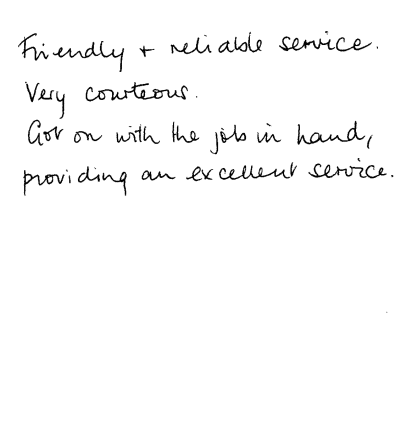 Friendly + reliable service.
Very courteous.
Got on with the job in hand,
providing an excellent service.